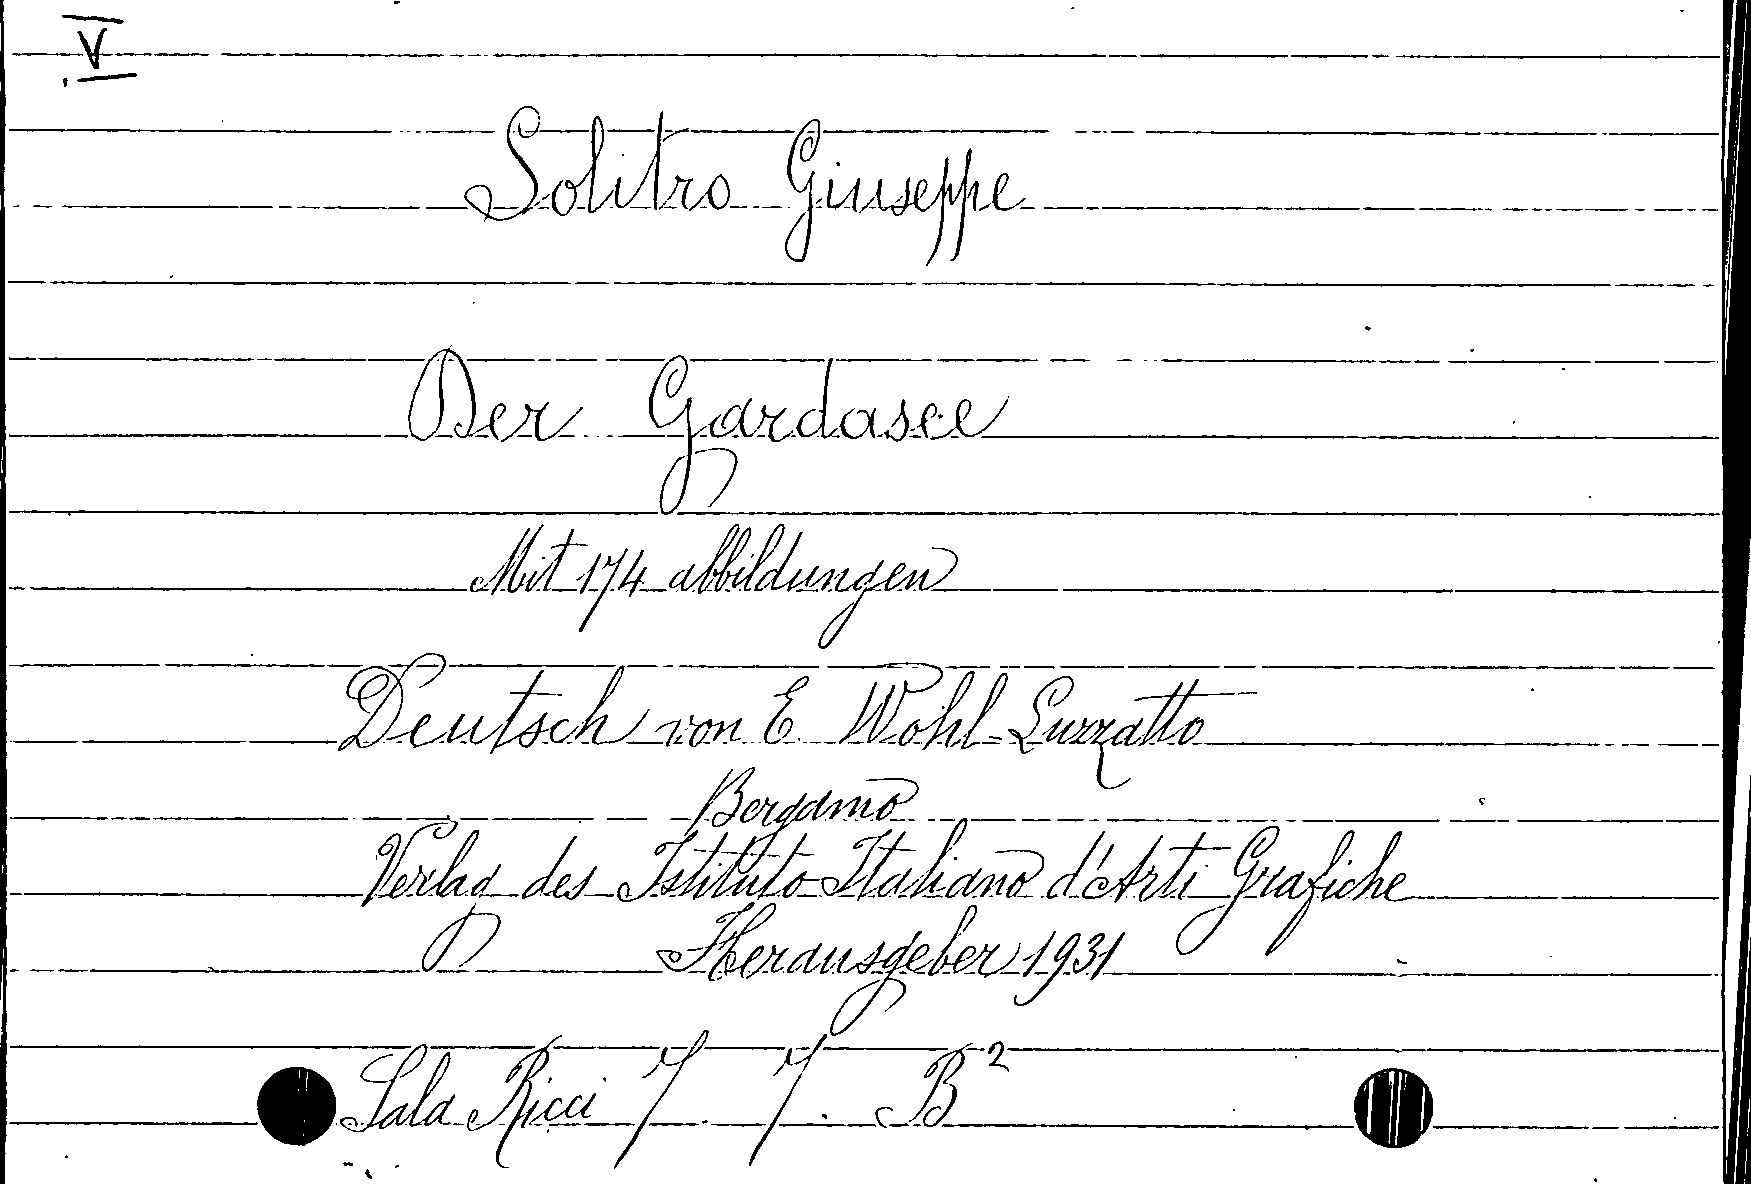 V
Solitro Giuseppe
Der Gardasee
Mit 174 abbildungen
Deutsch von E. Wohl-Luzzatto
Bergamo
Verlag des Istituto Italiano d'Arti Grafiche
Herausgeber 1931
Sala Ricci 7. 7. B²